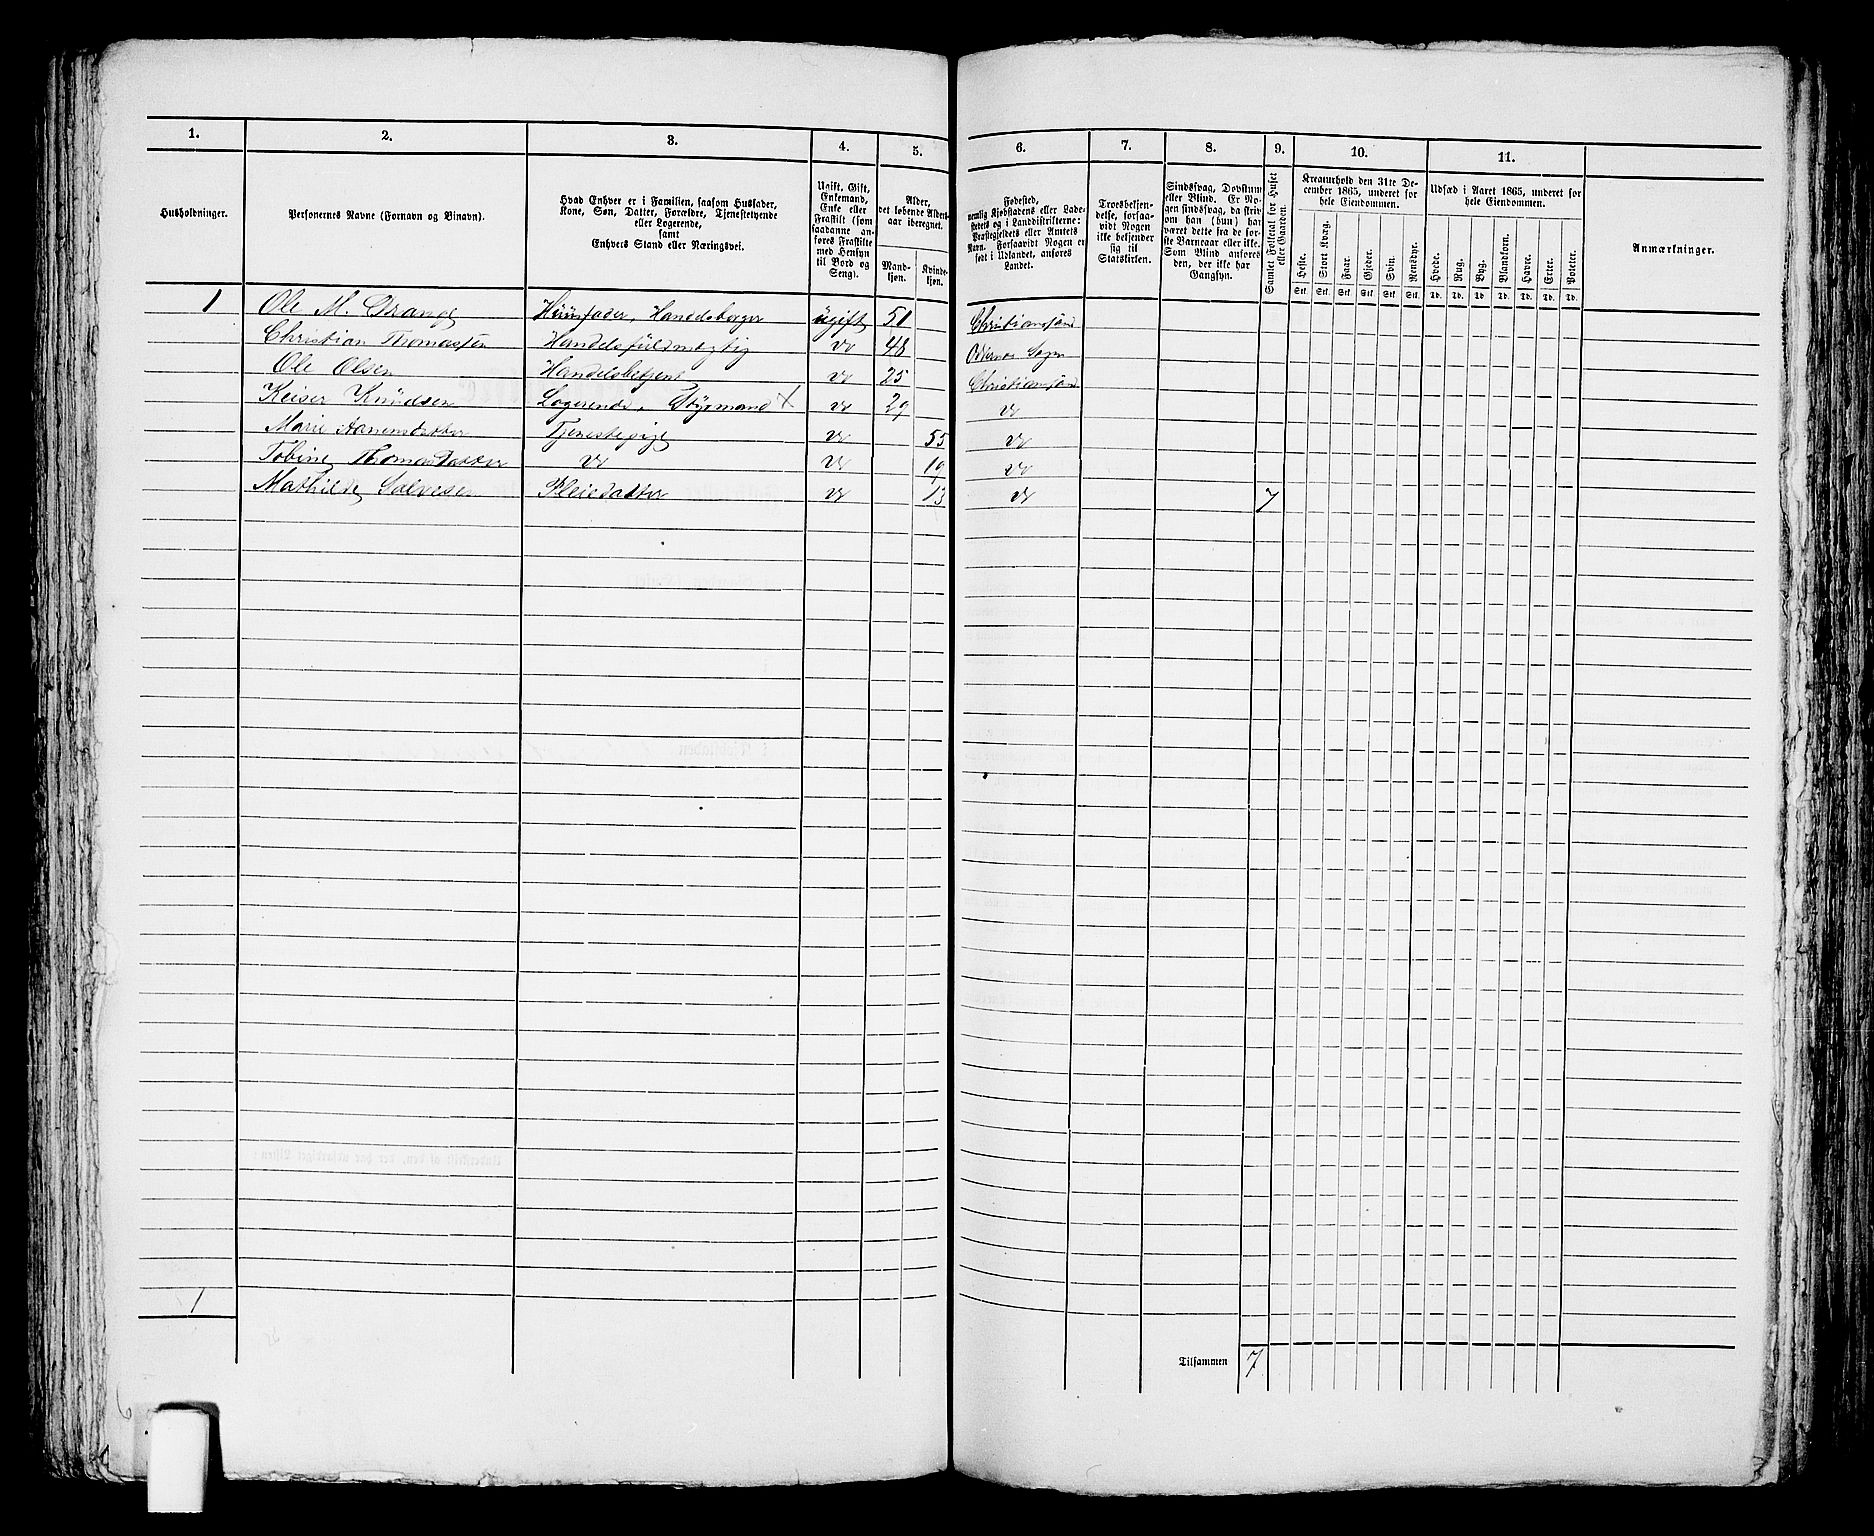 1. 2. 3. 4. 5. 6. 7. 8. 9. 10. 11.
Husholdninger.
Personernes Navne (Fornavn og Binavn).
Hvad Enhver er i Familien, saasom Husfader,
Kone, Søn, Datter, Forældre, Tjenestetyende
eller Logerende,
samt
Enhvers Stand eller Næringsvei.
Ugift, Gift,
Enkemand,
Enke eller
Fraskilt (som
saadanne an-
føres Fraskilte
med Hensyn
til Bord og
Seng).
Alder,
det løbende Alders-
aar iberegnet.
Mand-
kjøn.
Kvinde-
kjøn.
Fødested,
nemlig Kjøbstadens eller Lade-
stedets og i Landdistrikterne:
Præstegjeldets eller Amtets
Navn. Forsaavidt Nogen er
født i Udlandet, anføres
Landet.
Troesbekjen-
delse, forsaa-
vidt Nogen
ikke bekjender
sig til
Statskirken.
Sindssvag, Døvstum
eller Blind. Er No-
gen sindssvag, da skriv
om han (hun) har
været dette fra de før-
ste Barneaar eller ikke.
Som Blind anføres
den, der ikke har
Gangsyn.
Samlet Folketal for Huset
eller Gaarden.
Kreaturhold den 31te De-
cember 1865, underet for
hele Eiendommen.
Heste. Stort Kvæg. Faar. Gjeder. Svin. Rensdyr.
Stk. Stk. Stk. Stk. Stk. Stk.
Udsæd i Aaret 1865, underet for
hele Eiendommen.
Hvede. Rug. Byg. Blandkorn. Havre. Erter. Poteter.
Td. Td. Td. Td. Td. Td. Td.
Anmærkninger.
1 Ole M. Drange Huusfader, Handelsborger ugift 51 Christiansand
Christian Thomassen Handelsfuldmægtig do 48 Oddernes Sogn
Ole Olsen Handelsbetjent do 25 Christiansand
Keiser Knudsen Logerende, Styrmand × do 29 do
Marie Aanensdatter Tjenestepige do 55 do
Tobine Thomasdatter do do 19 do
Mathilde Salvesen Pleiedatter do 13 do 7
1
Tilsammen 7